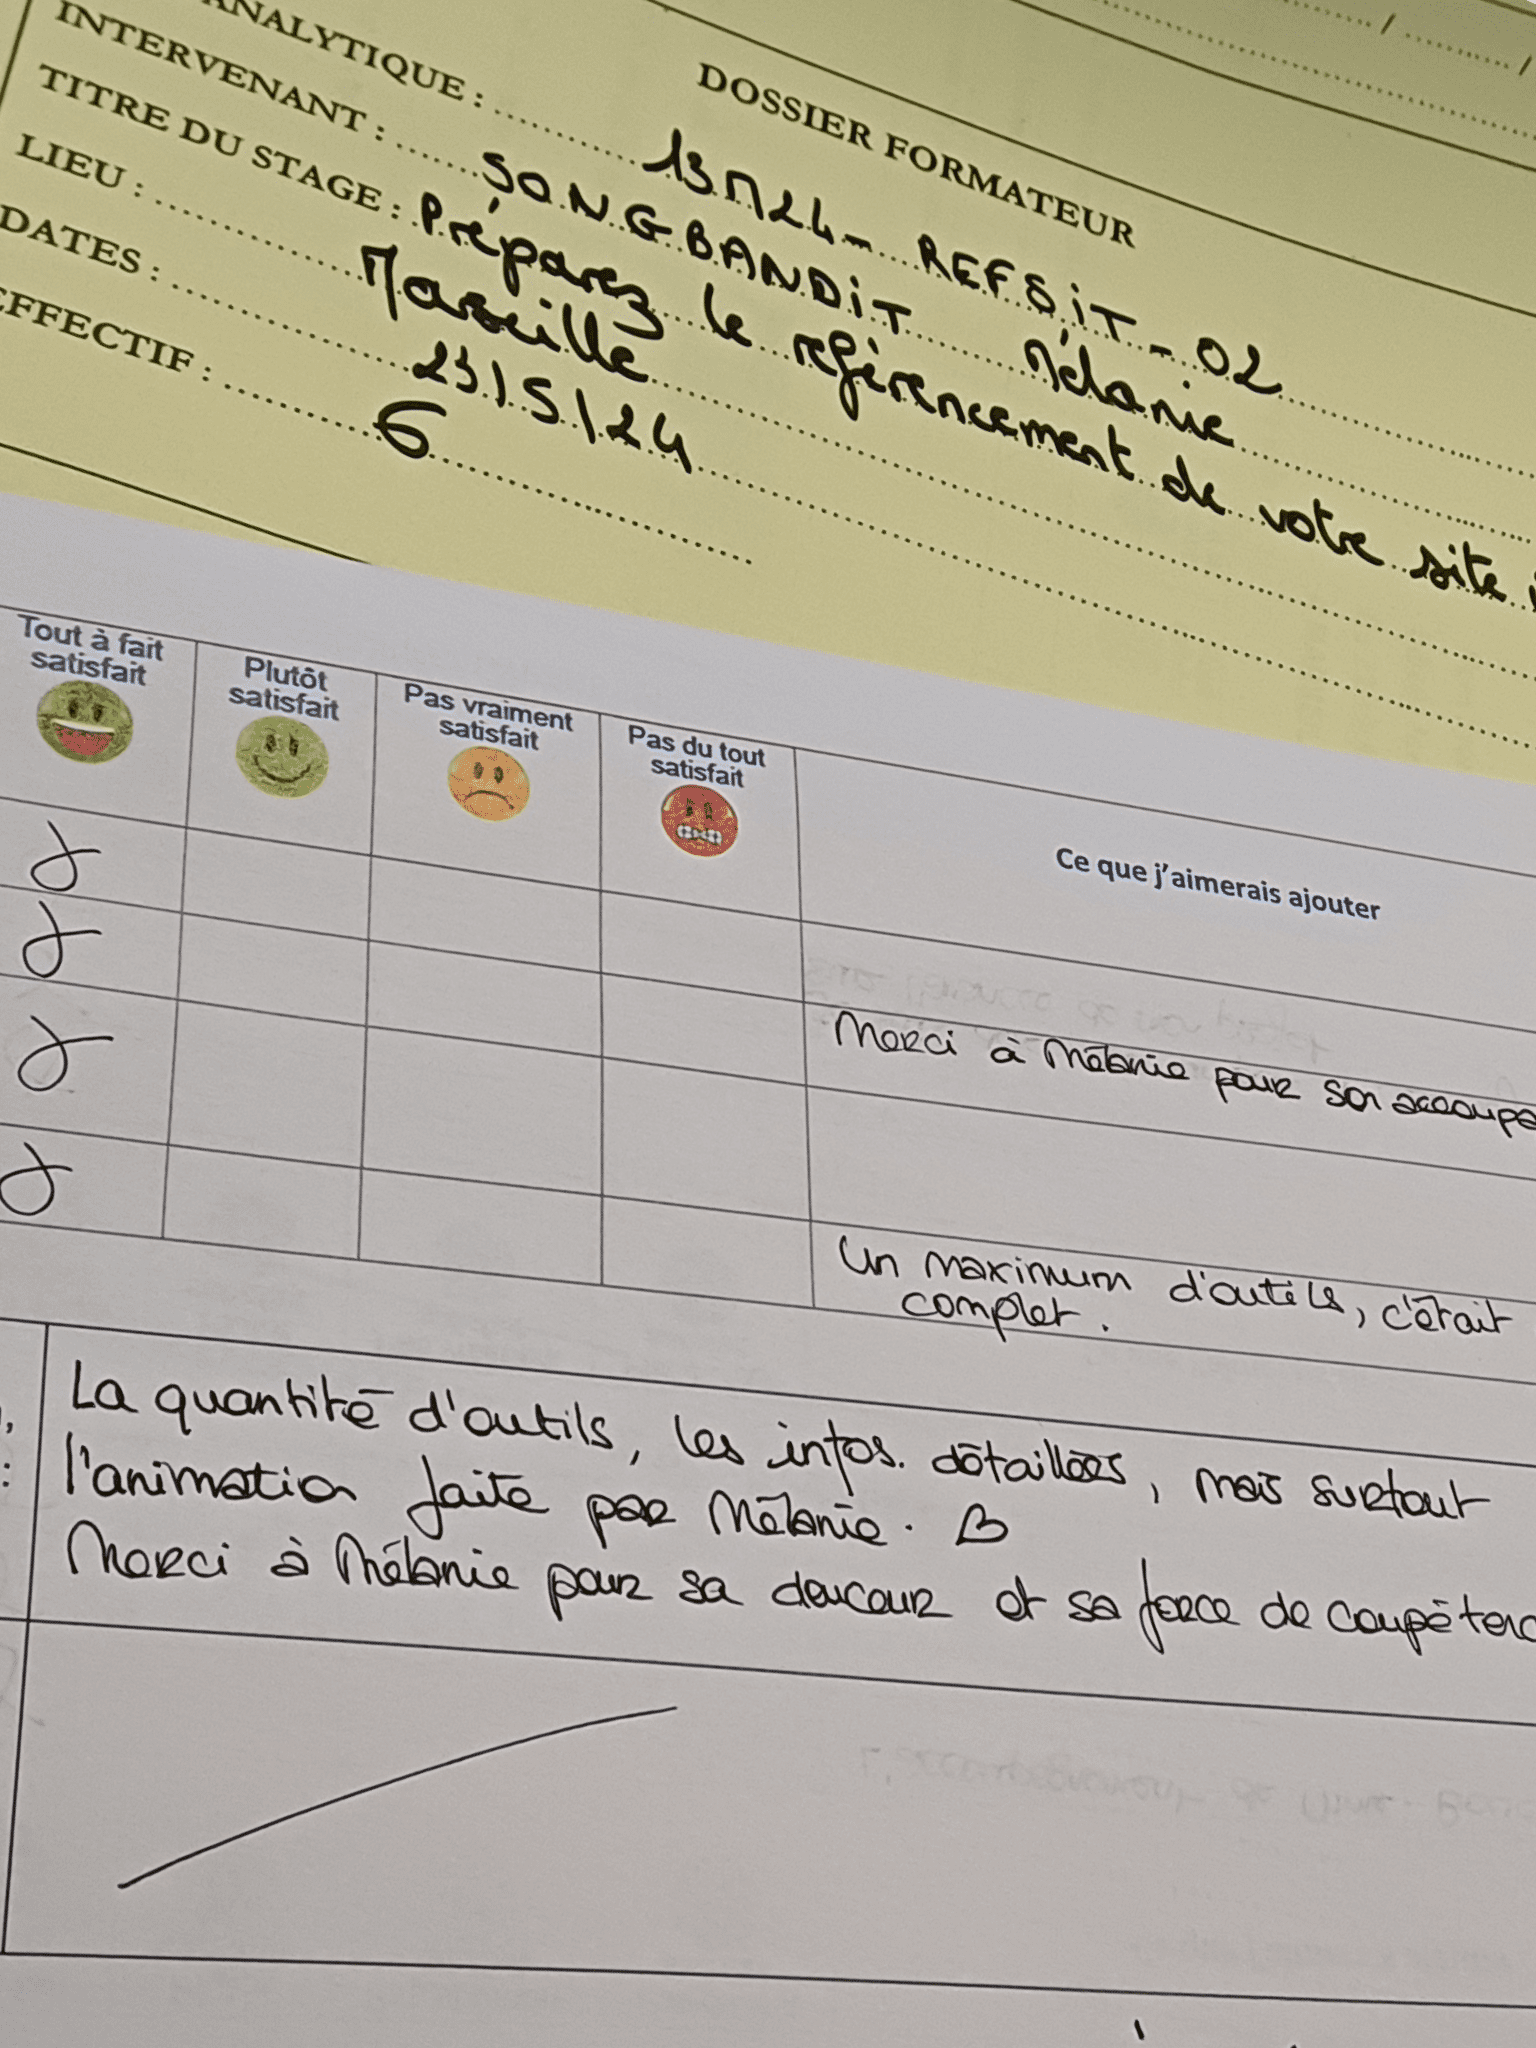 DOSSIER FORMATEUR
ANALYTIQUE : 13M24 - REFSIT - 02
INTERVENANT : SONGBANDIT Mélanie
TITRE DU STAGE : Préparez le référencement de votre site
LIEU : Marseille
DATES : 23/5/24
EFFECTIF : 6
Tout à fait satisfait
Plutôt satisfait
Pas vraiment satisfait
Pas du tout satisfait
Ce que j'aimerais ajouter
Merci à Mélanie pour son
Un maximum d'outils, c'était
complet.
La quantité d'outils, les infos. détaillées, mais surtout
l'animation faite par Mélanie.
Merci à Mélanie pour sa douceur et sa force de